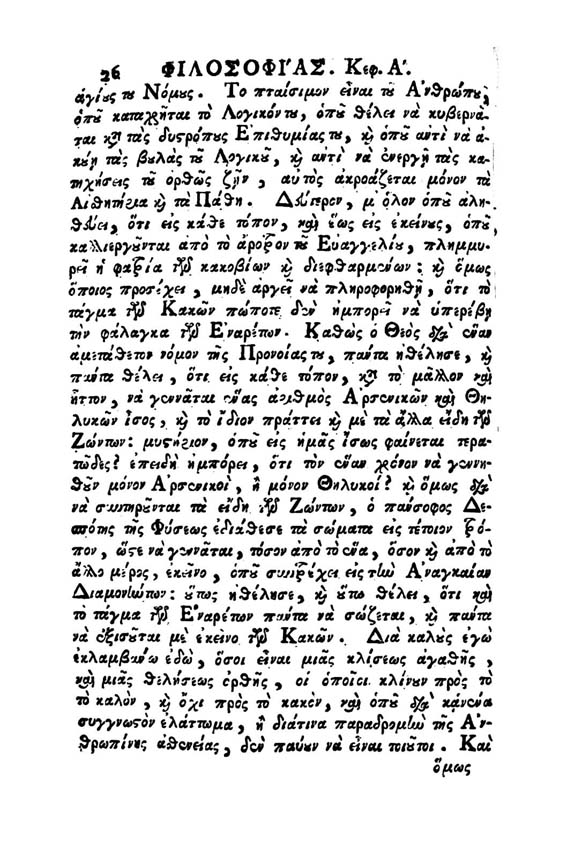 26 ΦΙΛΟΣΟΦΙ'ΑΣ. Κεφ. Α'.
ἁγίυς τυ Νόμυς. Το πταίσιμον εἶναι τῦ Α'νθρώπυ,
ὁπῦ καταχρῆται τὸ Λογικόντυ, ὁπῦ θέλει νὰ κυβερνᾶ-
ται κατὰ τὰς δυςρόπυς Ε'πιθυμίας τυ, καὶ ὁπῦ αὐτὶ νὰ ἀ-
κύῃ τὰς βυλὰς τῦ Λογικῦ, καὶ αὐτὶ νὰ ἐνεργῇ τὰς κα-
τηχήσεις τῦ ὀρθῶς ζῇν, αὐτὸς ἀκροάζεται μόνον τὰ
Αἰσθητήρια καὶ τὰ Πάθη. Δεύτερον, μ' ὅλον ὁπῦ ἀλη-
θεύει, ὅτι εἰς κάθε τόπον, καὶ ἕως εἰς ἐκείνυς, ὁπῦ
καλλιεργῦνται ἀπὸ τὸ ἄροτρον τῦ Εὐαγγελίυ, πλημμυ-
ρεῖ ἡ φατρία τῶν κακοβίων καὶ διεφθαρμένων: καὶ ὅμως
ὅποιος προσέχει, μηδὲ ἀργεῖ νὰ πληροφορηθῇ, ὅτι τὸ
τάγμα τῶν Κακῶν πώποτε δὲν ἠμπορεῖ νὰ ὑπερέβῃ
τὴν φάλαγκα τῶν Ε'ναρέτων. Καθὼς ὁ Θεὸς διὰ ἕναν
ἀμετάθετον νόμον τῆς Προνοίας τυ, πάντα ἠθέλησε, καὶ
πάντα θέλει, ὅτι εἰς κάθε τόπον, κατὰ τὸ μᾶλλον καὶ
ἧττον, νὰ γεννᾶται ἕνας ἀριθμὸς Α'ρσενικῶν καὶ Θη-
λυκῶν ἴσος, καὶ τὸ ἴδιον πράττει καὶ μὲ τὰ ἄλλα εἴδη τῶν
Ζώντων: μυςήριον, ὁπῦ εἰς ἡμᾶς ἴσως φαίνεται τερα-
τῶδες? ἐπειδὴ ἠμπόρει, ὅτι τὸν ἕναν χρόνον νὰ γεννη-
θῦν μόνον Α'ρσενικοὶ, ἢ μόνον Θηλυκοί? καὶ ὅμως διὰ
νὰ συντηρῦνται τὰ εἴδη τῶν Ζώντων, ὁ πάνσοφος Δε-
σπότης τῆς Φύσεως ἐδιάθεσε τὰ σώματα εἰς τέτοιον τρό-
πον, ὥςε νὰ γεννᾶται, τόσον ἀπὸ τὸ ἕνα, ὅσον καὶ ἀπὸ τὸ
ἄλλο μέρος, ἐκεῖνο, ὁπῦ συντρέχει εἰς τὴν Α'ναγκαίαν
Διαμονήντων: ὕτως ἠθέλησε, καὶ ὕτω θέλει, ὅτι καὶ
τὸ τάγμα τῶν Ε'ναρέτων πάντα νὰ σώζεται, καὶ πάντα
νὰ ἐξισῦται μὲ ἐκεῖνο τῶν Κακῶν. Διὰ καλὺς ἐγὼ
ἐκλαμβάνω ἐδὼ, ὅσοι εἶναι μιᾶς κλίσεως ἀγαθῆς,
καὶ μιᾶς θελήσεως ὀρθῆς, οἱ ὁποῖοι κλίνυν πρὸς τὸ
τὸ καλὸν, καὶ ὄχι πρὸς τὸ κακὸν, καὶ ὁπῦ διὰ κᾀνένα
συγγνωςὸν ἐλάττωμα, ἢ διάτινα παραδρομὴν τῆς Α'ν-
θρωπίνης ἀσθενείας, δὲν παύυν νὰ εἶναι τοιῦτοι. Καὶ
ὅμως